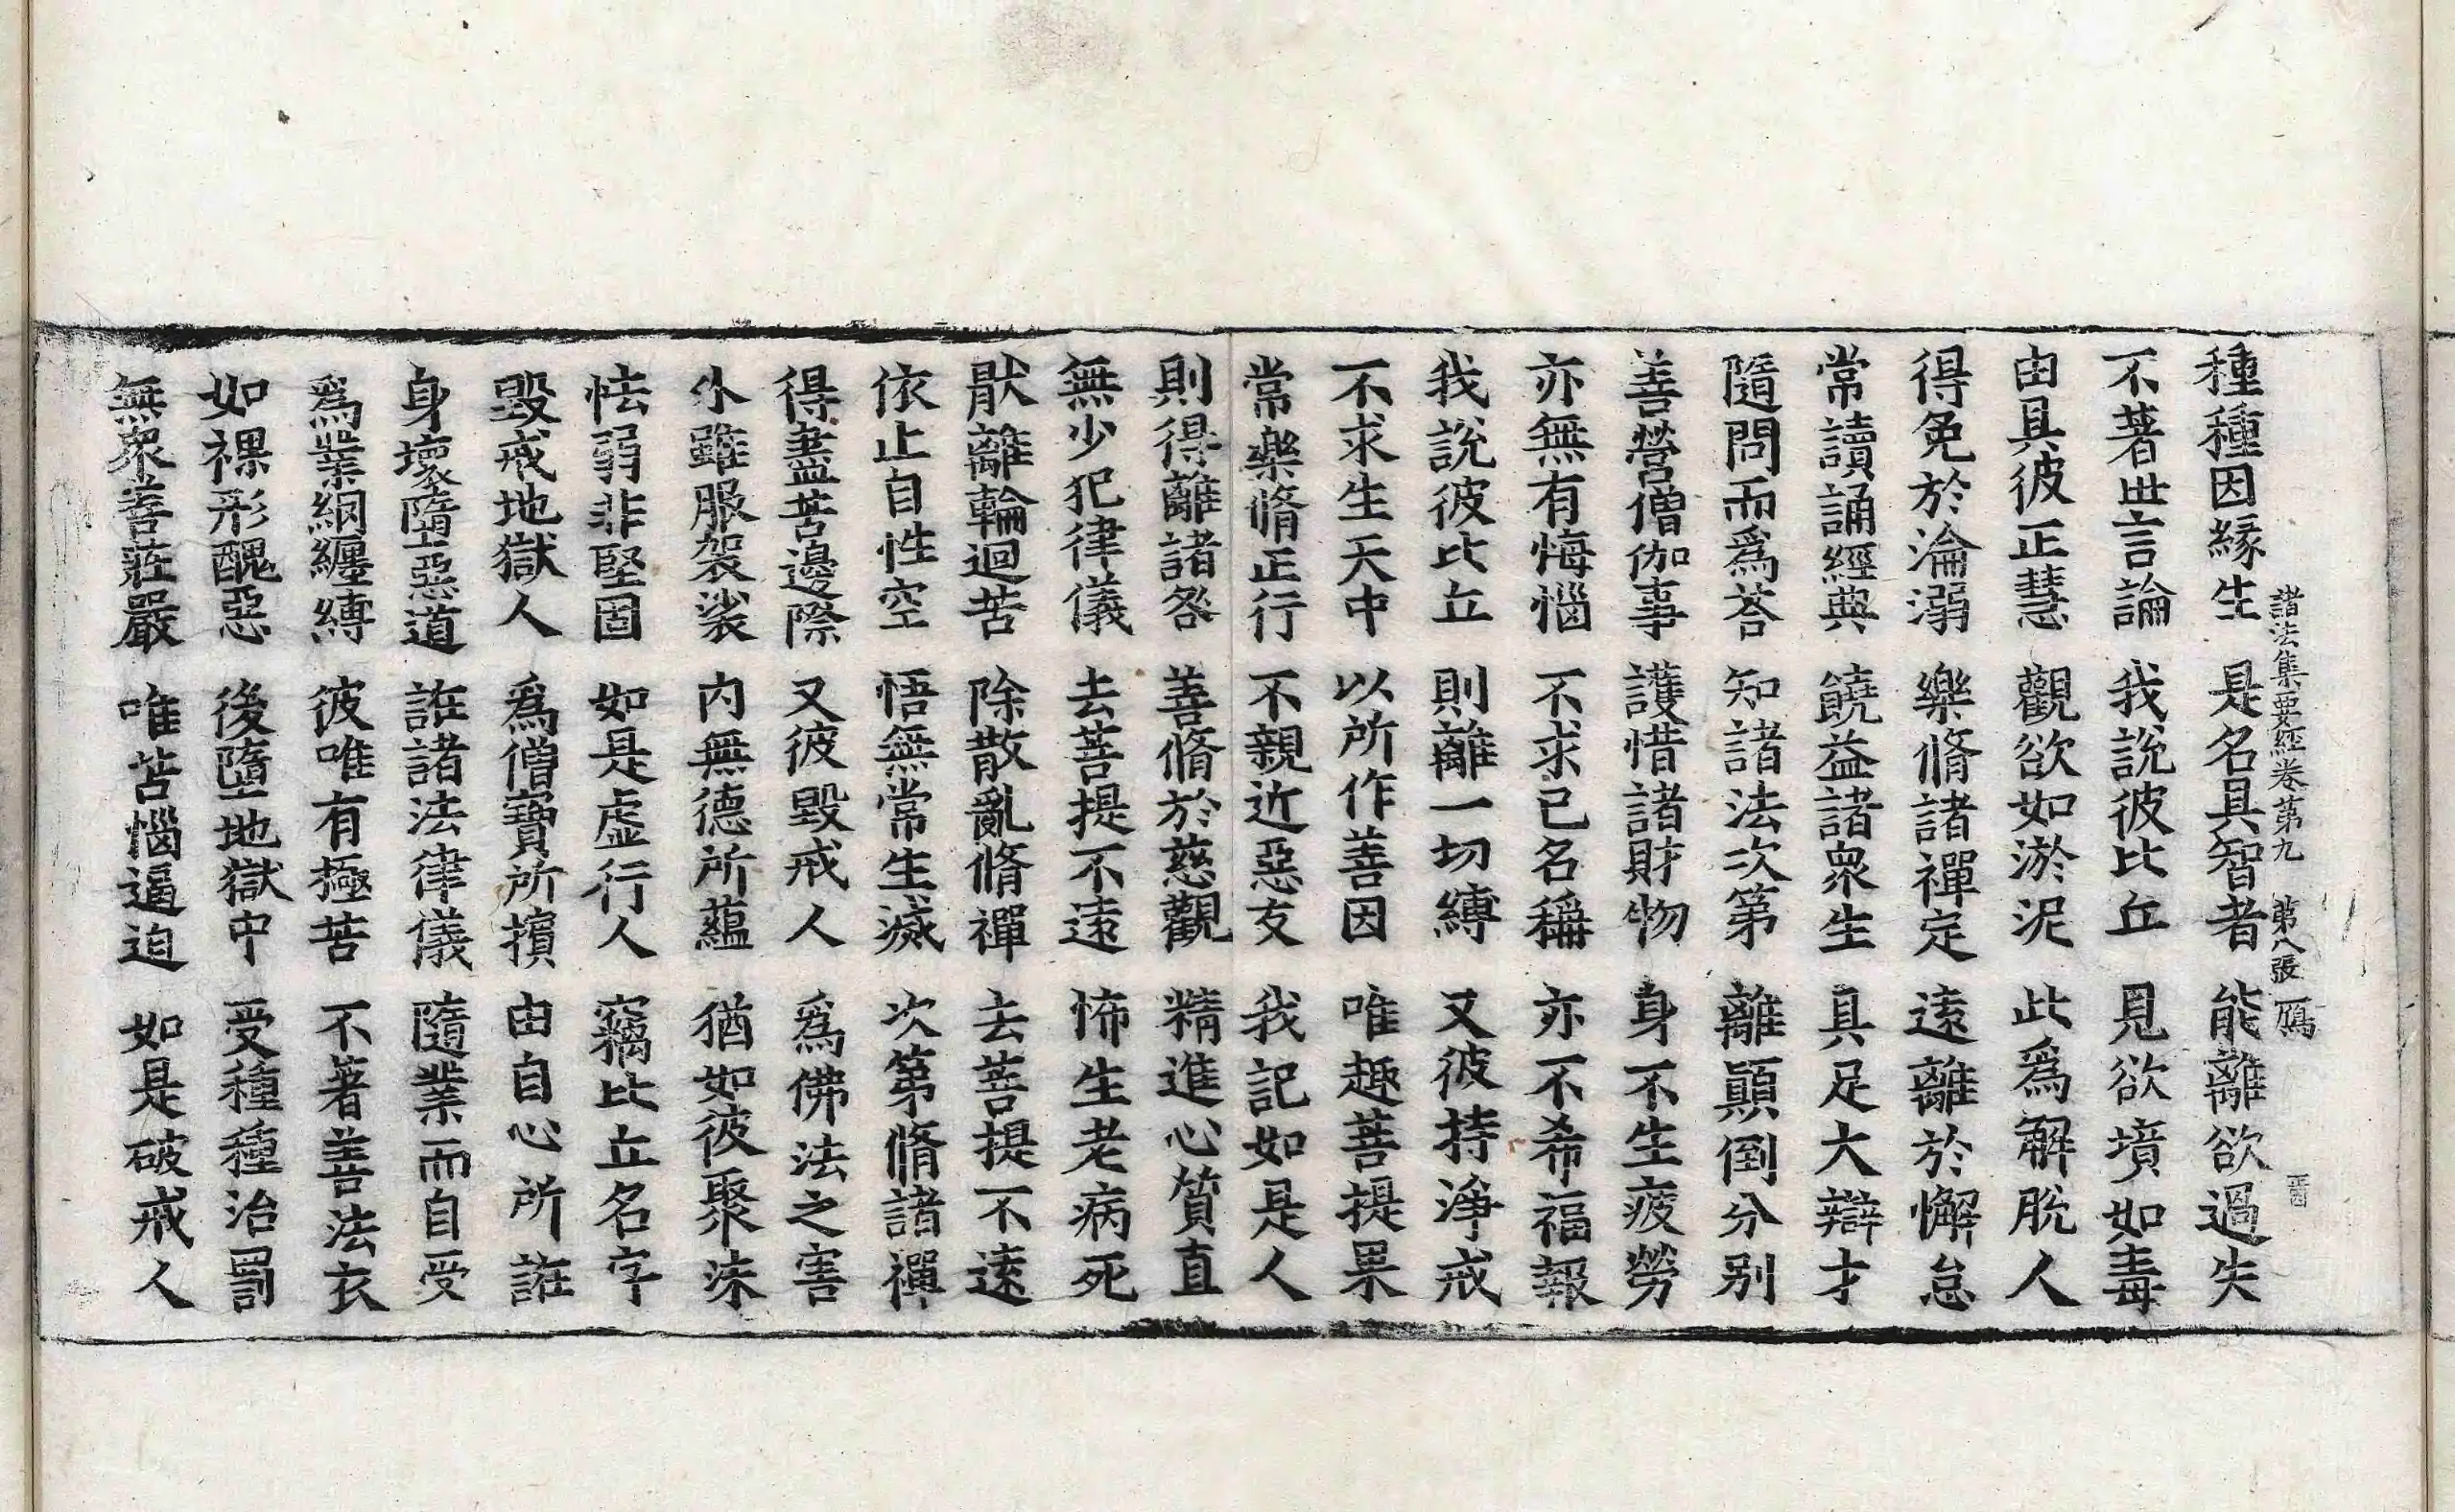 諸法集要經卷第九　第八張　鴈
種種因緣生　是名具智者　能離欲過失
不著世言論　我說彼比丘　見欲墳如毒
由具彼正慧　觀欲如淤泥　此爲解脫人
得免於淪溺　樂脩諸禪定　遠離於懈怠
常讀誦經典　饒益諸衆生　具足大辯才
隨問而爲荅　知諸法次第　離顛倒分別
善營僧伽事　護惜諸財物　身不生疲勞
亦無有悔惱　不求己名稱　亦不希福報
我說彼比丘　則離一切縛　又彼持淨戒
不求生天中　以所作善因　唯趣菩提果
常樂脩正行　不親近惡友　我記如是人
則得離諸咎　善脩於慈觀　精進心質直
無少犯律儀　去菩提不遠　怖生老病死
猒離輪迴苦　除散亂脩禪　去菩提不遠
依止自性空　悟無常生滅　次第脩諸禪
得盡苦邊際　又彼毀戒人　爲佛法之害
外雖服袈裟　內無德所蘊　猶如彼聚沫
怯弱非堅固　如是虛行人　竊比丘名字
毀戒地獄人　爲僧寶所擯　由自心所誑
身壞墮惡道　誑諸法律儀　隨業而自受
爲業網纏縛　彼唯有極苦　不著善法衣
如裸形醜惡　後墮地獄中　受種種治罰
無衆善莊嚴　唯苦惱逼迫　如是破戒人